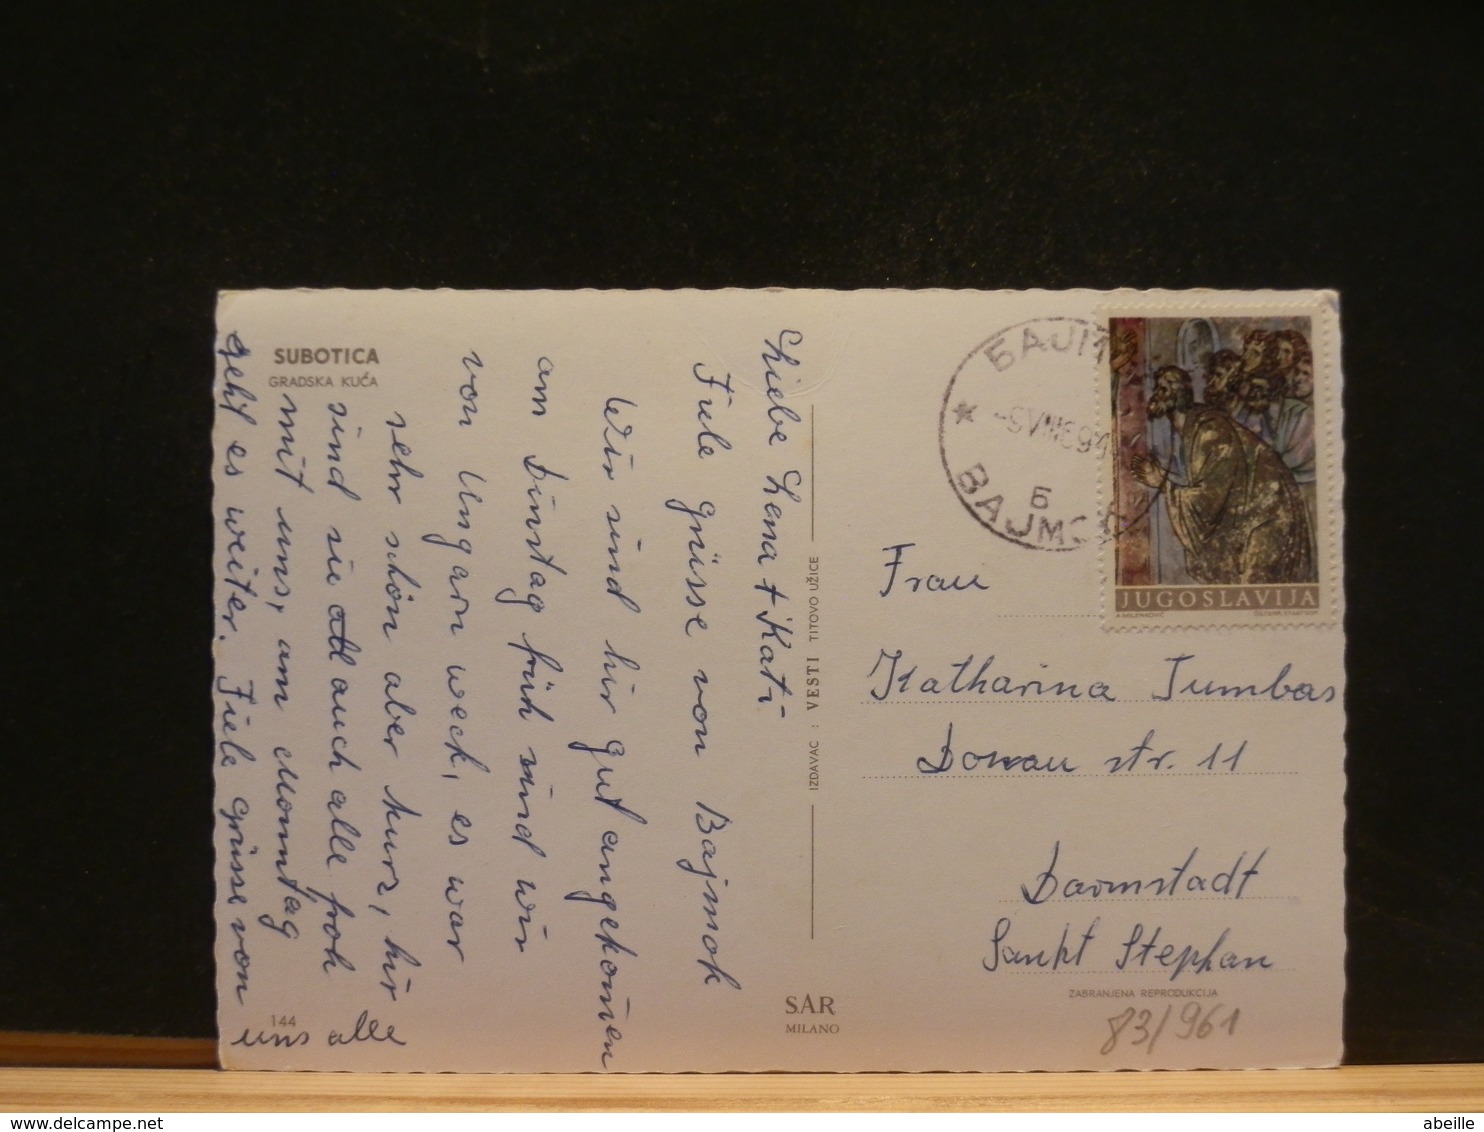 SUBOTICA
GRADSKA KUĆA
Liebe Lena + Kati
Fiele grüsse von Bajmok
Wir sind hir gut angekomen
am Dinstag früh sind wir
von Ungarn weck, es war
sehr schön aber kurz, hir
sind sie auch alle froh
mit uns, am Momntag
geht es weiter. Fiele grüsse von
uns alle
144
IZDAVAC : VESTI TITOVO UŽICE
SAR
MILANO
БАЈМ
-9VIII69
Б
BAJMOK
JUGOSLAVIJA
Frau
Katharina Tumbas
Donau str. 11
Darmstadt
Sankt Stephan
ZABRANJENA REPRODUKCIJA
83/961
abeille